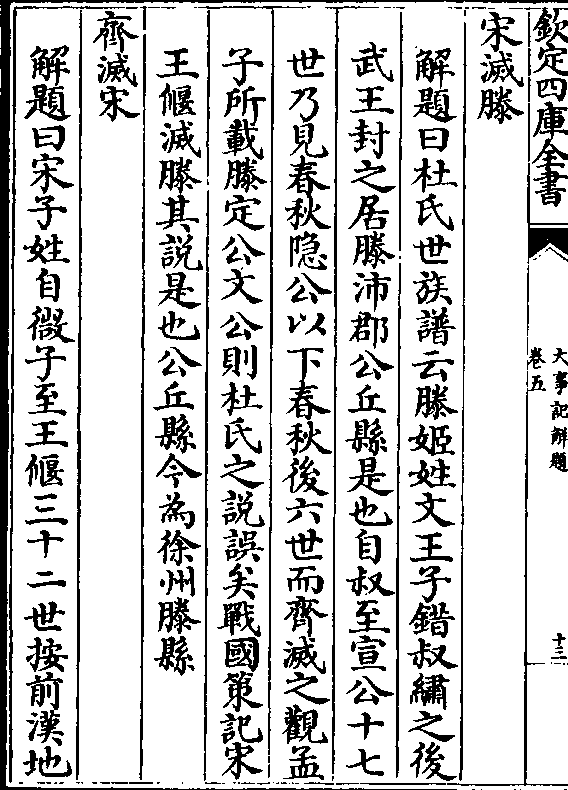 欽定四庫全書
大事記解題
卷五
十三
宋滅滕
解題曰杜氏世族譜云滕姬姓文王子錯叔繡之後
武王封之居滕沛郡公丘縣是也自叔至宣公十七
世乃見春秋隐公以下春秋後六世而齊滅之觀孟
子所載滕定公文公則杜氏之説誤矣戰國策記宋
王偃滅滕其説是也公丘縣今為徐州滕縣
齊滅宋
解題曰宋子姓自微子至王偃三十二世按前漢地